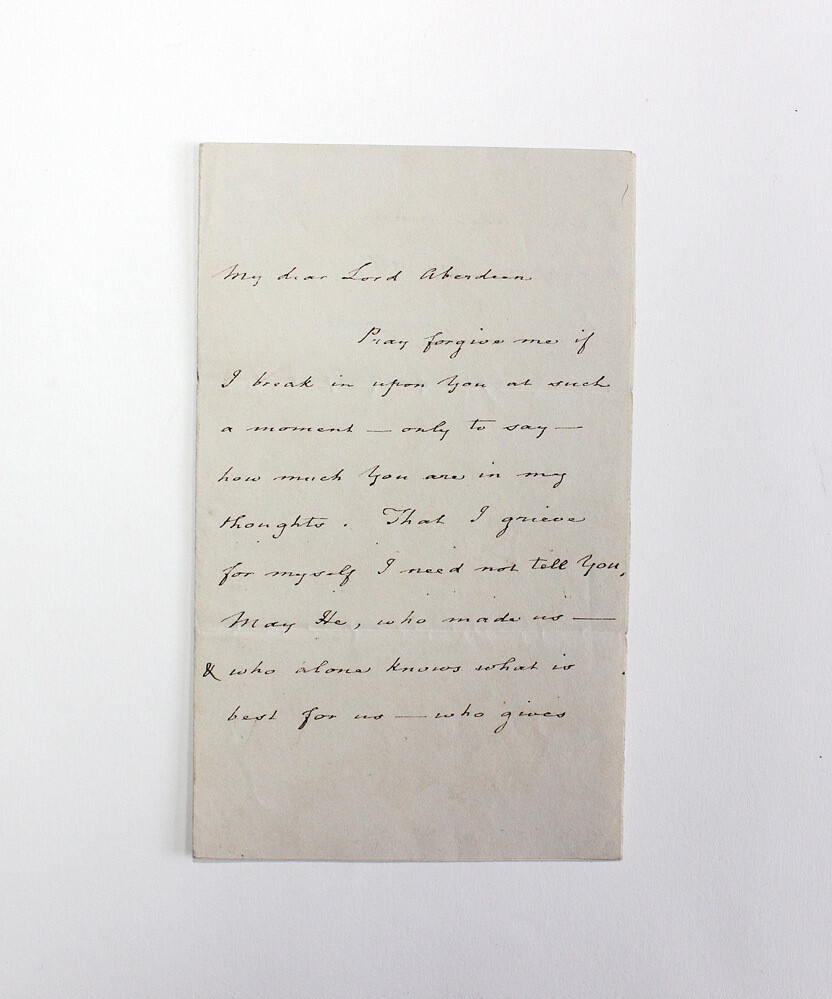 My dear Lord Aberdeen
Pray forgive me if
I break in upon You at such
a moment — only to say —
how much You are in my
thoughts. That I grieve
for myself I need not tell You.
May He, who made us —
& who alone knows what is
best for us — who gives